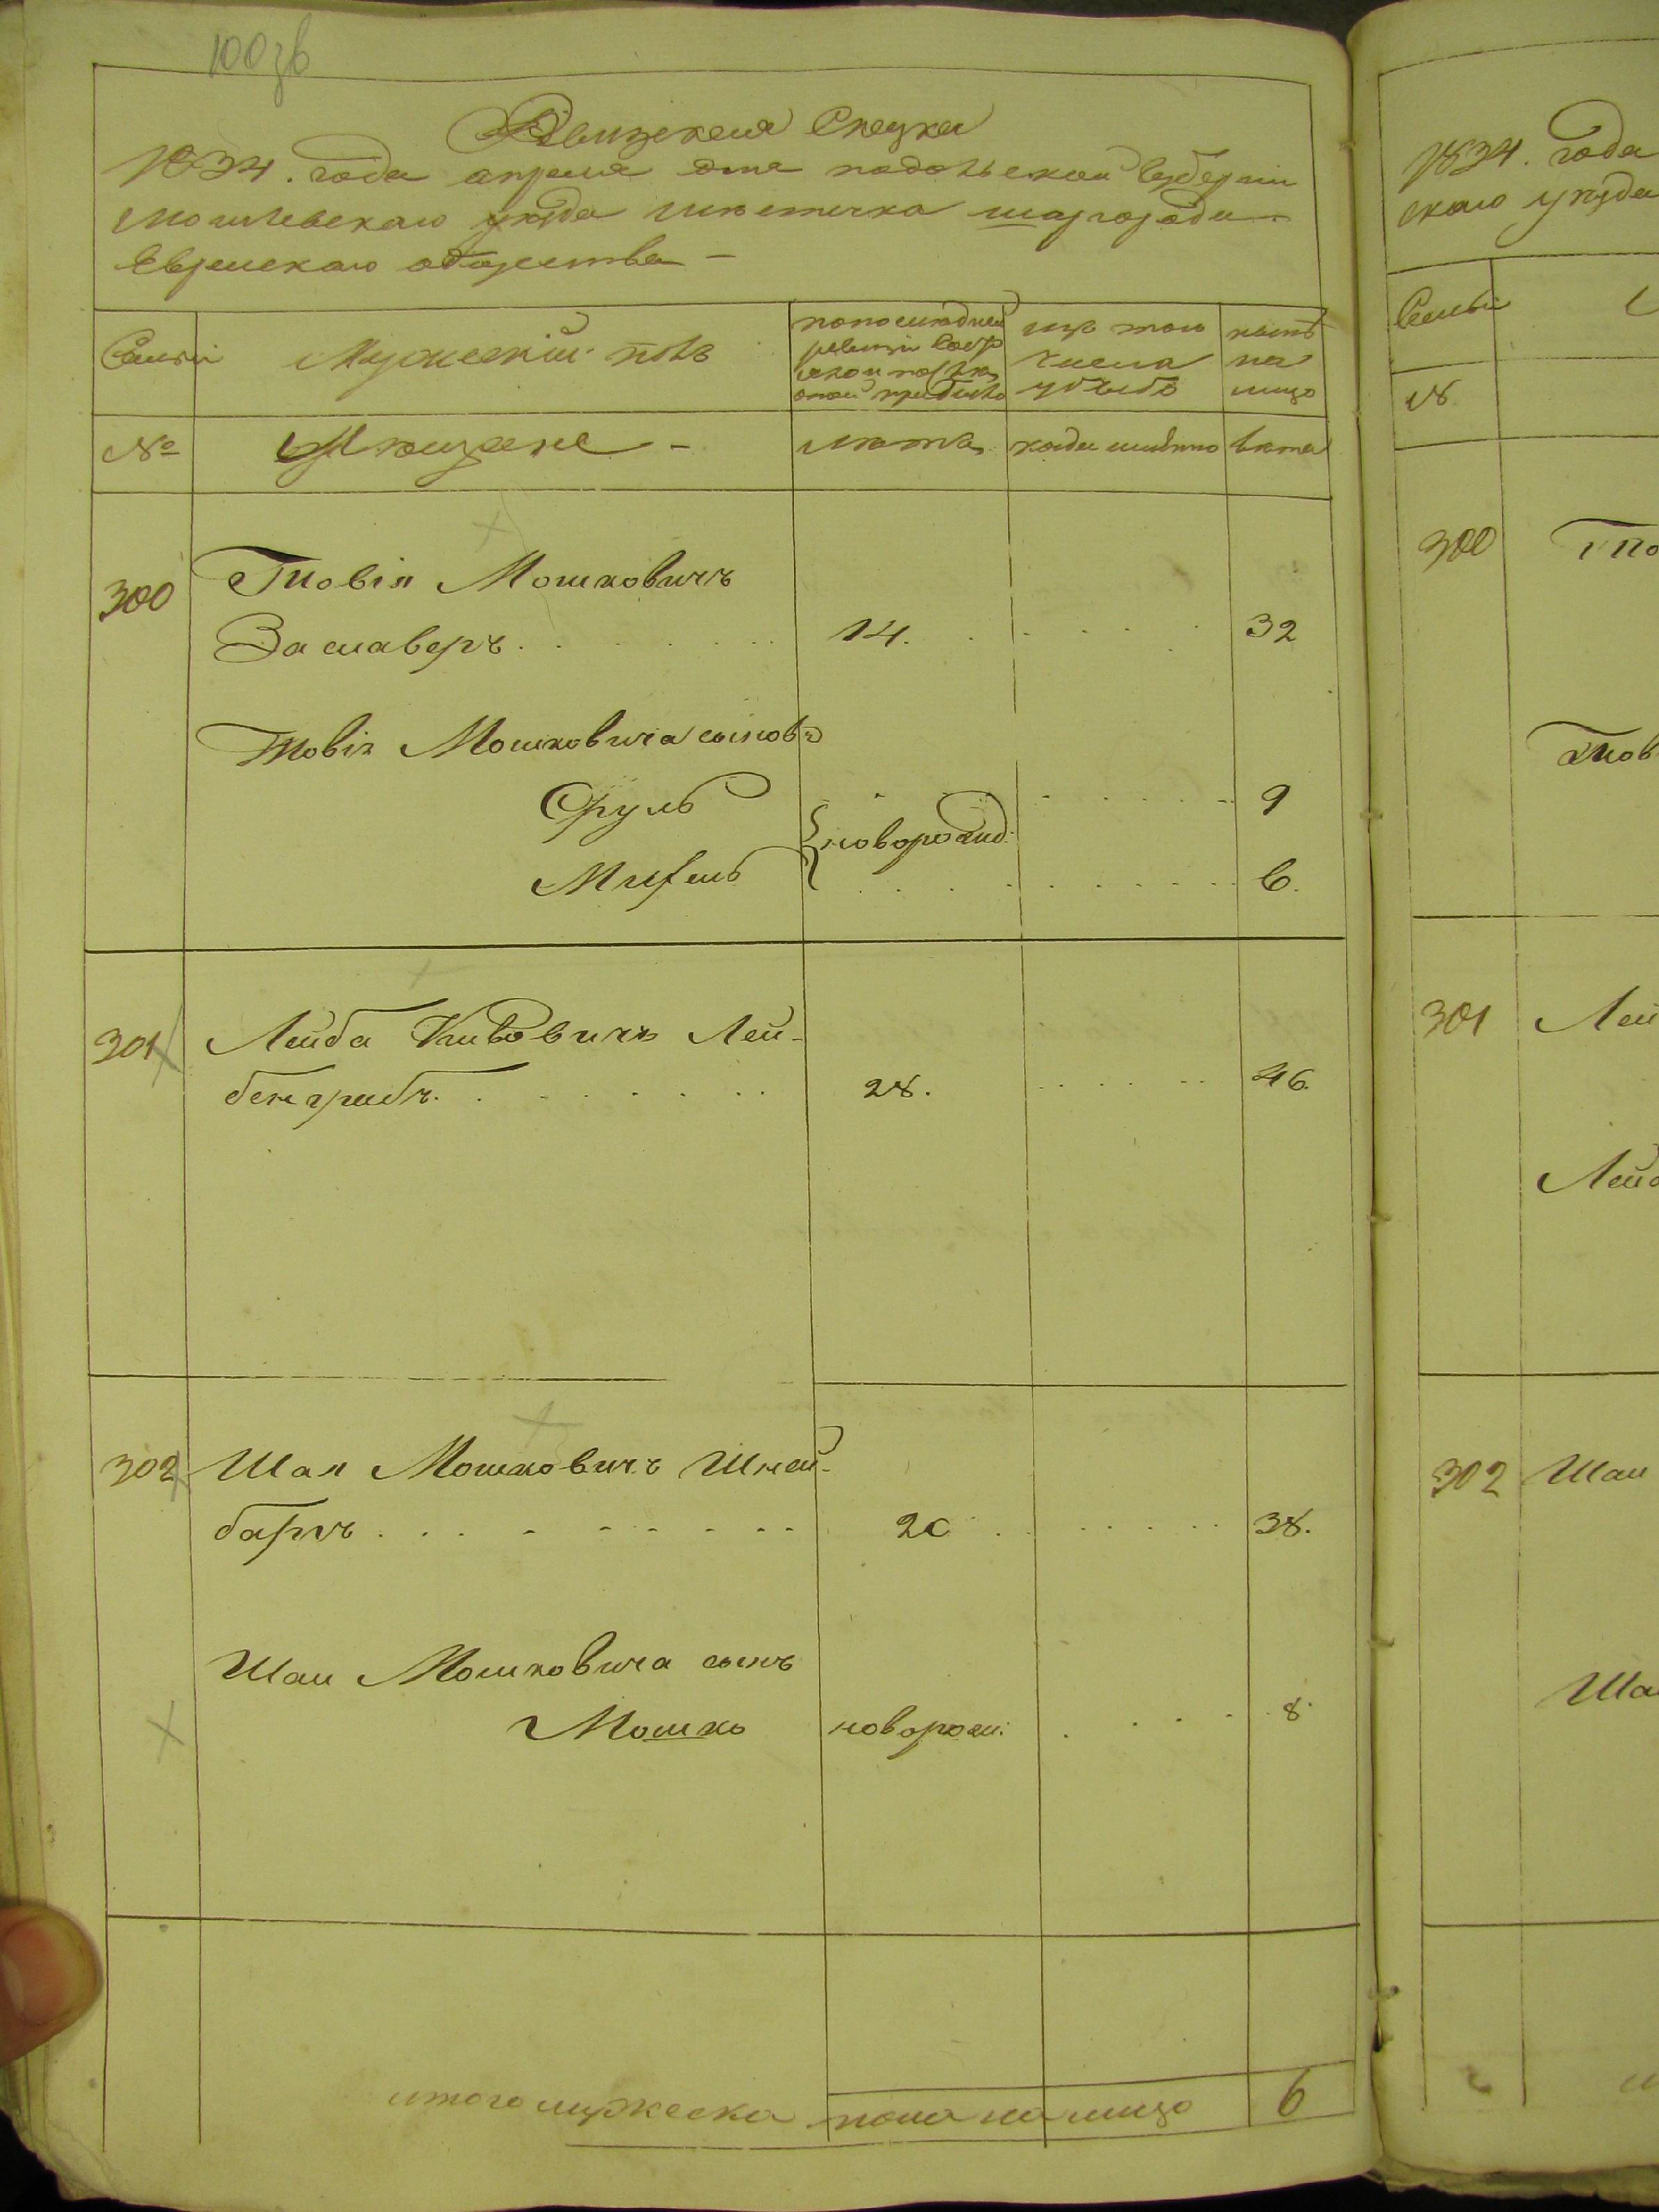 100зв
Ревизская Сказка
1834. года апреля дня подольской Губернии
могилевскаго уезда местечка шаргорода
Еврейскаго общества –
Семьи
Мужескій полъ
по последней
ревизіи состо
яло и после
оной прибыло
изъ того
числа
убыло
ныне
на
лицо
№
Мещане –
лета
когда имянно
лета
300
Товія Мошковичъ
Заславеръ
14.
32
Товія Мошковича сыновья
Сруль
9
новорожд:
Михель
6.
301
Лейба Кивовичъ Лей-
бенграбъ.
28.
46.
302
Шая Мошковичъ Шней-
баръъ
20
38.
Шаи Мошковича сынъ
Мошко
новорож:
8
итого мужеска пола на лицо
6
1834. года
скаго уезда
Семьи
№
300
Тов
301
Лей
Лейб
302
Шаи
Ша